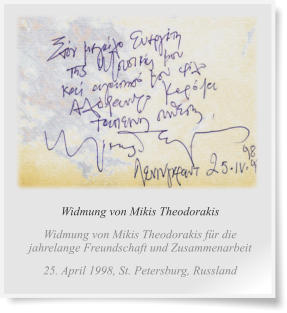 Στον μεγάλο Ευεργέτη
της Μουσικής μου
και αγαπητό μου φίλο
Αλέξανδρο Καρόζα
25.IV.98
Widmung von Mikis Theodorakis
Widmung von Mikis Theodorakis für die
jahrelange Freundschaft und Zusammenarbeit
25. April 1998, St. Petersburg, Russland